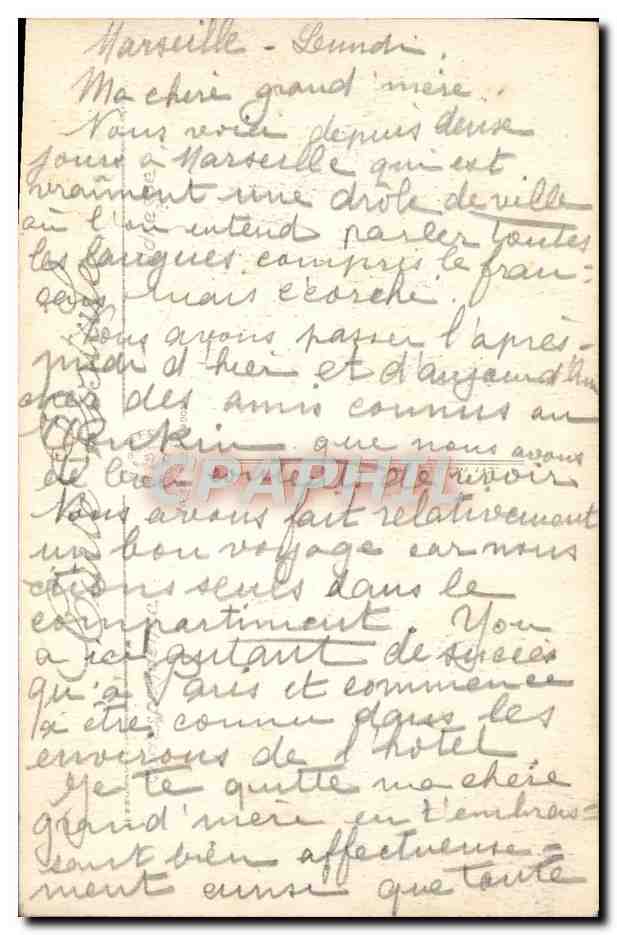 Marseille - Lundi.
Ma chère grand'mère.
Nous voici depuis deux
jours à Marseille qui est
vraiment une drôle de ville
où l'on entend parler toutes
les langues compris le fran-
çais mais écorché.
Nous avons passer l'après-
midi d'hier et d'aujourd'hui
chez des amis connus au
que nous avons
été bien de revoir
Nous avons fait relativement
un bon voyage car nous
étions seuls dans le
compartiment. You
a ici autant de succès
qu'à Paris et commence
à être connu dans les
environs de l'hôtel
Je te quitte ma chère
grand'mère en t'embras-
sant bien affectueuse-
ment ainsi que toute
CPAPHIL